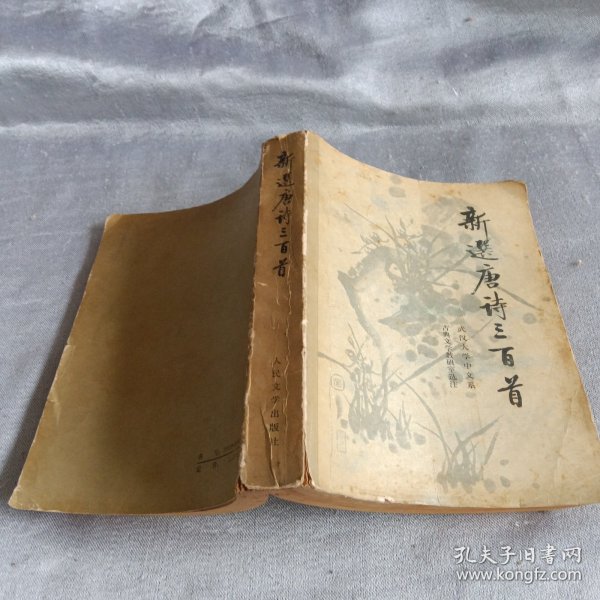 新选唐诗三百首
人民文学出版社
新选唐诗三百首
武汉大学中文系
古典文学教研室选注
孔夫子旧书网
www.kongfz.com